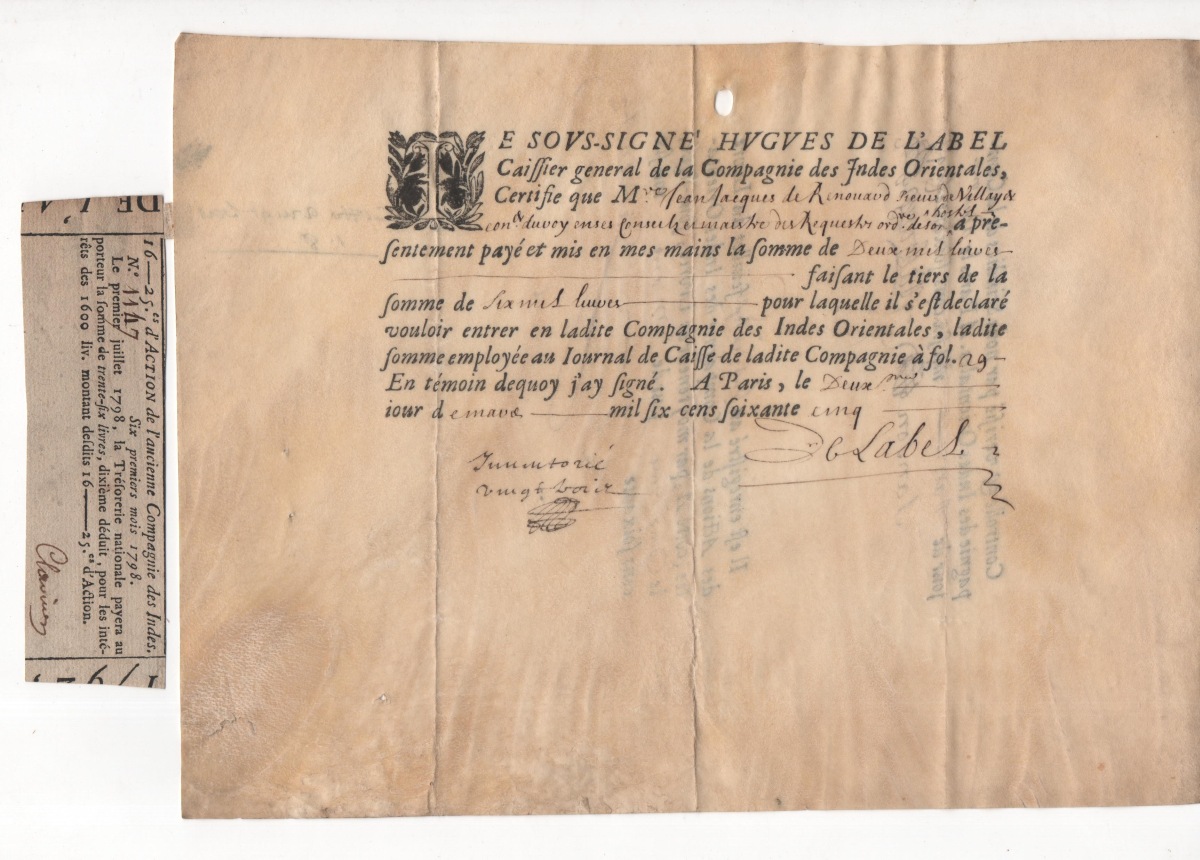 IE SOVS-SIGNE' HVGVES DE L'ABEL
Caissier general de la Compagnie des Indes Orientales,
Certifie que M.re Jean Jacques de Renouard sieur de Villayer
con.er du roy en ses Conseils et maistre des Requestes ord.re de son hostel a pre-
sentement payé et mis en mes mains la somme de Deux mil liures
faisant le tiers de la
somme de Six mil liures pour laquelle il s'est declaré
vouloir entrer en ladite Compagnie des Indes Orientales, ladite
somme employée au Iournal de Caisse de ladite Compagnie à fol. 29
En témoin dequoy j'ay signé. A Paris, le Deuxme
iour de mars mil six cens soixante cinq
De Label
Inuentorié
vingt
DE L'A
16—25.es d'ACTION de l'ancienne Compagnie des Indes.
N.º 1147 Six premiers mois 1798.
Le premier juillet 1798, la Trésorerie nationale payera au
porteur la somme de trente-six livres, dixième déduit, pour les inté-
rêts des 1600 liv. montant desdits 16—25.es d'Action.